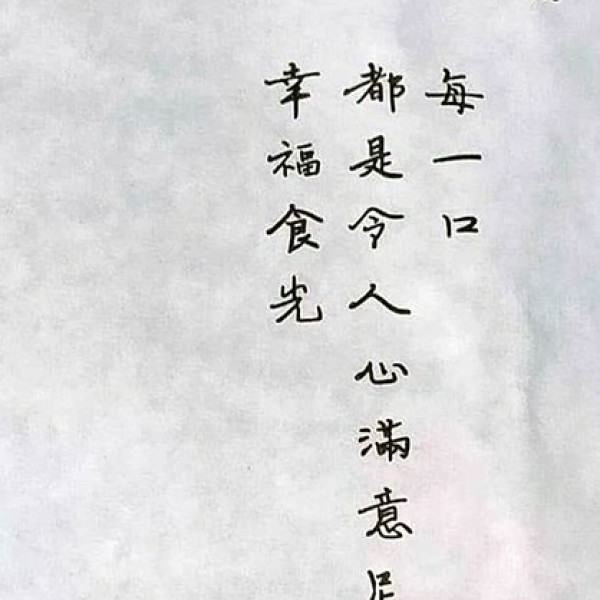 每一口
都是令人心滿意足
幸福食光